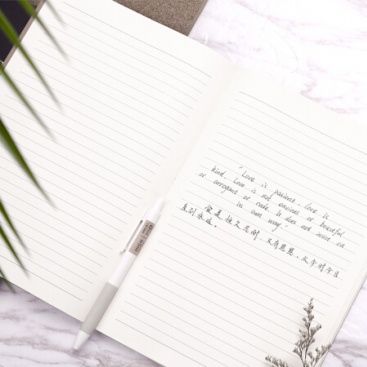 "Love is patient, love is
kind. Love is not envious or boastful
or arrogant or rude. It does not insist on
its own way."
爱是恒久忍耐，又有恩慈，又
直到永远。